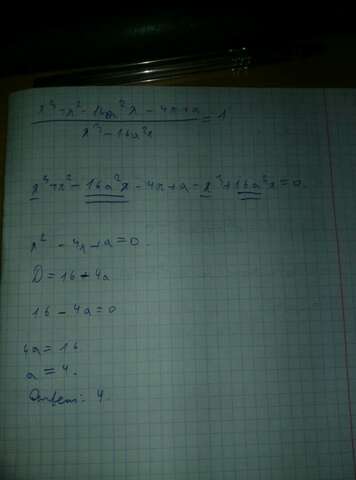 x³ + x² - 16a²x - 4x + a
x³ - 16a²x
= 1
x³ + x² - 16a²x - 4x + a - x³ + 16a²x = 0.
x² - 4x + a = 0.
D = 16 - 4a
16 - 4a = 0
4a = 16
a = 4.
Ответ: 4.